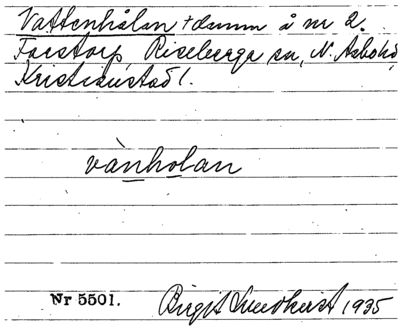 Vattenhålan + damm å nr 2.
Farstorp, Riseberga sn, N. Åsbo hd,
Kristianstad l.
vànholan
Nr 5501. Birgit Lundkvist 1935